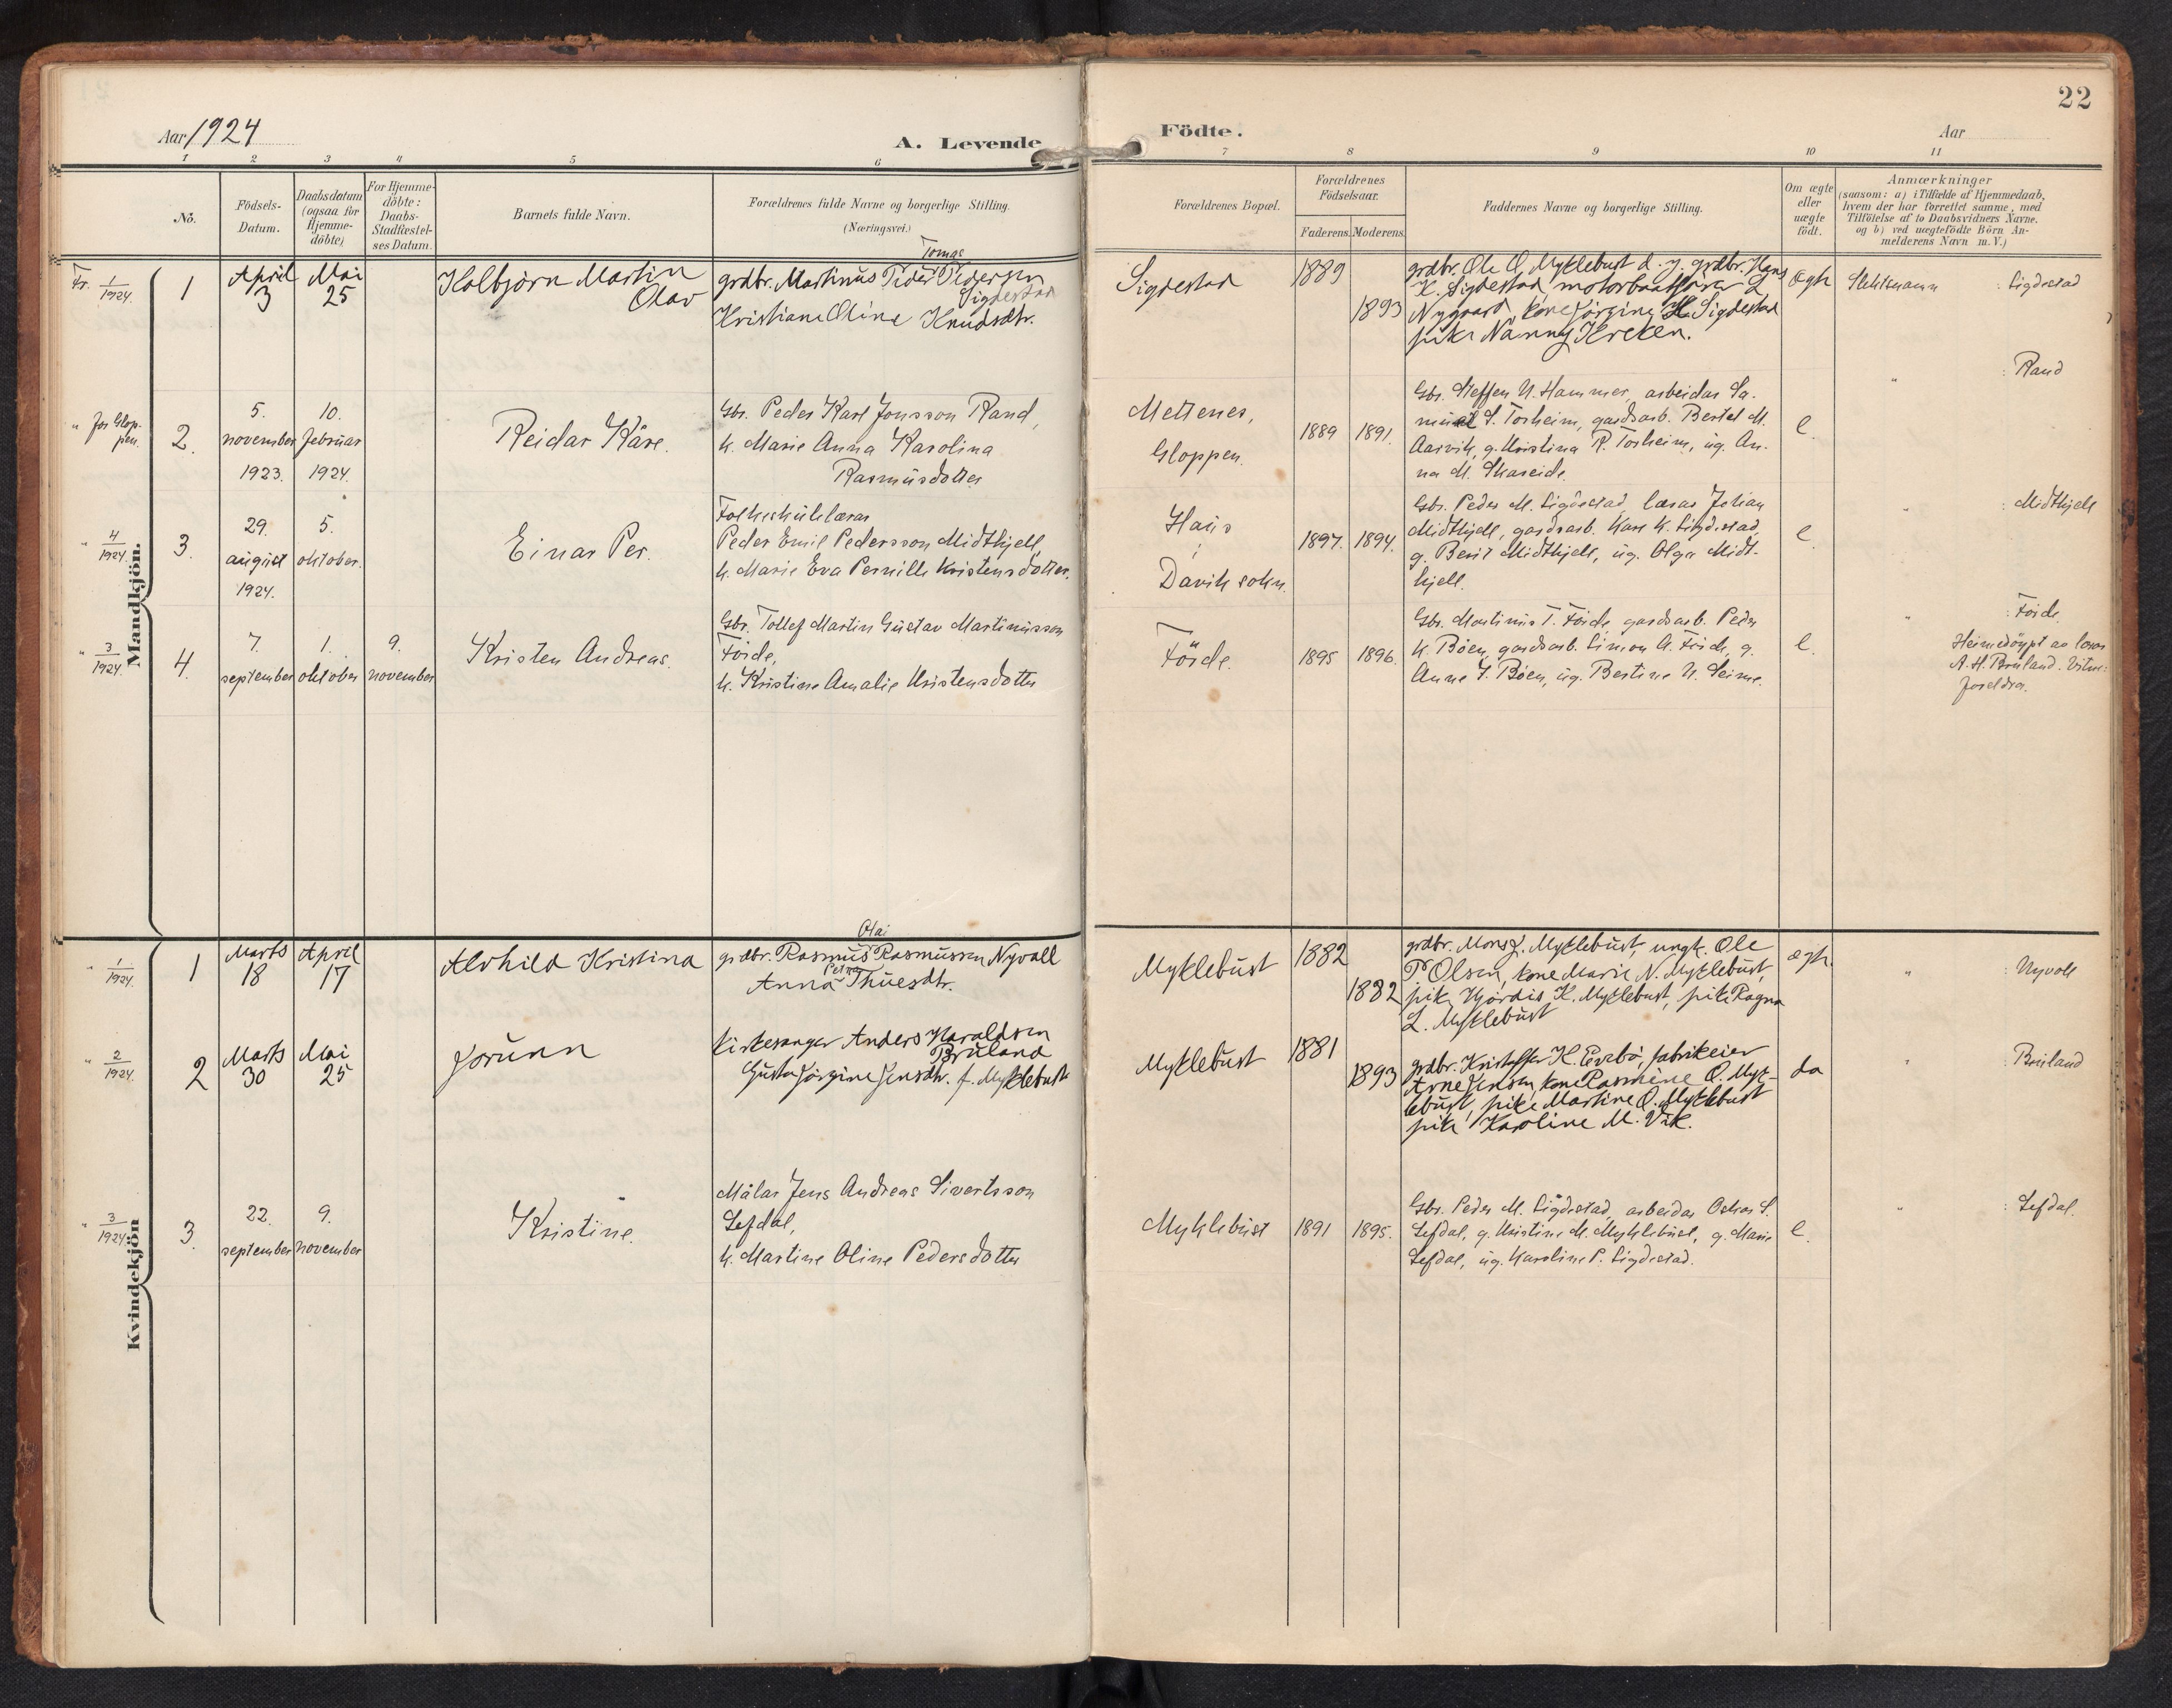 22
Aar 1924
A. Levende
Födte.
Aar
1 2 3 4 5 6 7 8 9 10 11
No.
Födsels-
Datum.
Daabsdatum
(ogsaa for
Hjemme-
döbte)
For Hjemme-
döbte:
Daabs-
Stadfæstel-
ses Datum.
Barnets fulde Navn.
Forældrenes fulde Navne og borgerlige Stilling.
(Næringsvei.)
Forældrenes Bopæl.
Forældrenes
Födselsaar.
Faderens. Moderens.
Faddernes Navne og borgerlige Stilling.
Om ægte
eller
uægte
født.
Anmærkninger
(saasom: a) i Tilfælde af Hjemmedaab,
hvem der har forrettet samme, med
Tilföielse af to Daabsvidners Navne.
og b) ved uægtefödte Börn An-
melderens Navn m.V.)
Mandkjön.
Fr. 1/1924
1
April
3
Mai
25
Kolbjörn Martin
Olav
Tomas
grdbr. Martinus Peder Pedersen
Sigdestad
Kristiane Oline Knudsdtr.
Sigdestad
1889
1893
grdbr. Ole O. Myklebust d. y. grdbr. Hans
K. Sigdestad, motorbaatförer L
Nygaard, kone Jörgine H. Sigdestad
pike Nanny Kreken.
ægte
: Sigdestad
" for Glop-
pen.
2.
5.
november
1923.
10.
februar
1924.
Reidar Kåre.
Gbr. Peder Karl Jonsson Rand,
k. Marie Anna Karolina
Rasmusdotter
Gloppen.
1889
1891.
Gbr. Steffen N. Hammer, arbeidar Sa-
muel S. Torheim, gardsarb. Bertel M.
Aarvik, g. Kristina R. Torheim, ug. An-
na M. Skareide.
e.
" : Rand
" 4/1924
3.
29.
august
1924.
5.
oktober.
Einar Per.
Folkeskulelærar
Peder Emil Pedersson Midthjell,
k. Marie Eva Pernille Kristensdotter.
Haus
Davik sokn.
1897.
1894.
Gbr. Peder M. Sigdestad, lærar Johan
Midthjell, gardsarb. Kare K. Sigdestad,
g. Berit Midthjell, ug. Olga Midt-
hjell.
e.
" : Midthjell
" 3/1924.
4.
7.
september
1.
oktober
9.
november
Kristen Andreas.
Gbr. Tollef Martin Gustav Martinusson
Förde,
k. Kristine Amalie Kristensdotter
Förde.
1895
1896.
Gbr. Martinus T. Förde, gardsarb. Peder
K. Böen, gardsarb. Simon A. Förde, g.
Anne J. Böen, ug. Bertine N. Seime.
e.
" : Förde.
Heimedöypt av lærar
A. H. Bruland. Vitne:
foreldra.
Kvindekjön
" 1/1924.
1
Marts
18
April
17
Alvhild Kristina
Olai
grdbr. Rasmus Rasmussen Nyvoll
Petra
Anna Thuesdtr.
Myklebust
1882
1882
grdbr. Mons J. Myklebust, ungk. Ole
P. Olsen, kone Marie N. Myklebust,
pike Hjördis K. Myklebust, pike Ragna
L. Myklebust
ægte.
" : Nyvoll
" 2/1924.
2
Marts
30
Mai
25
Jorunn
Kirkesanger Anders Haraldsen
Bruland
Gusta Jörgine Jensdtr. f. Myklebust
Myklebust
1881
1893
grdbr. Kristoffer K. Evebö, fabrikeier
Arne Jensen, kone Rasmine O. Myk-
lebust, pike Martine O. Myklebust
pike Karoline M. Vik.
do
" : Bruland
" 3/1924.
3.
22.
september
9.
november
Kristine.
Målar Jens Andreas Sivertsson
Lefdal,
k. Martine Oline Pedersdotter
Myklebust
1891
1895.
Gbr. Peder M. Sigdestad, arbeidar Oskar S.
Lefdal, g. Kristine M. Myklebust, g. Marie
Lefdal, ug. Karoline P. Sigdestad.
e.
" : Lefdal.